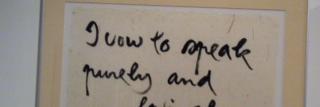 I vow to speak
purely and